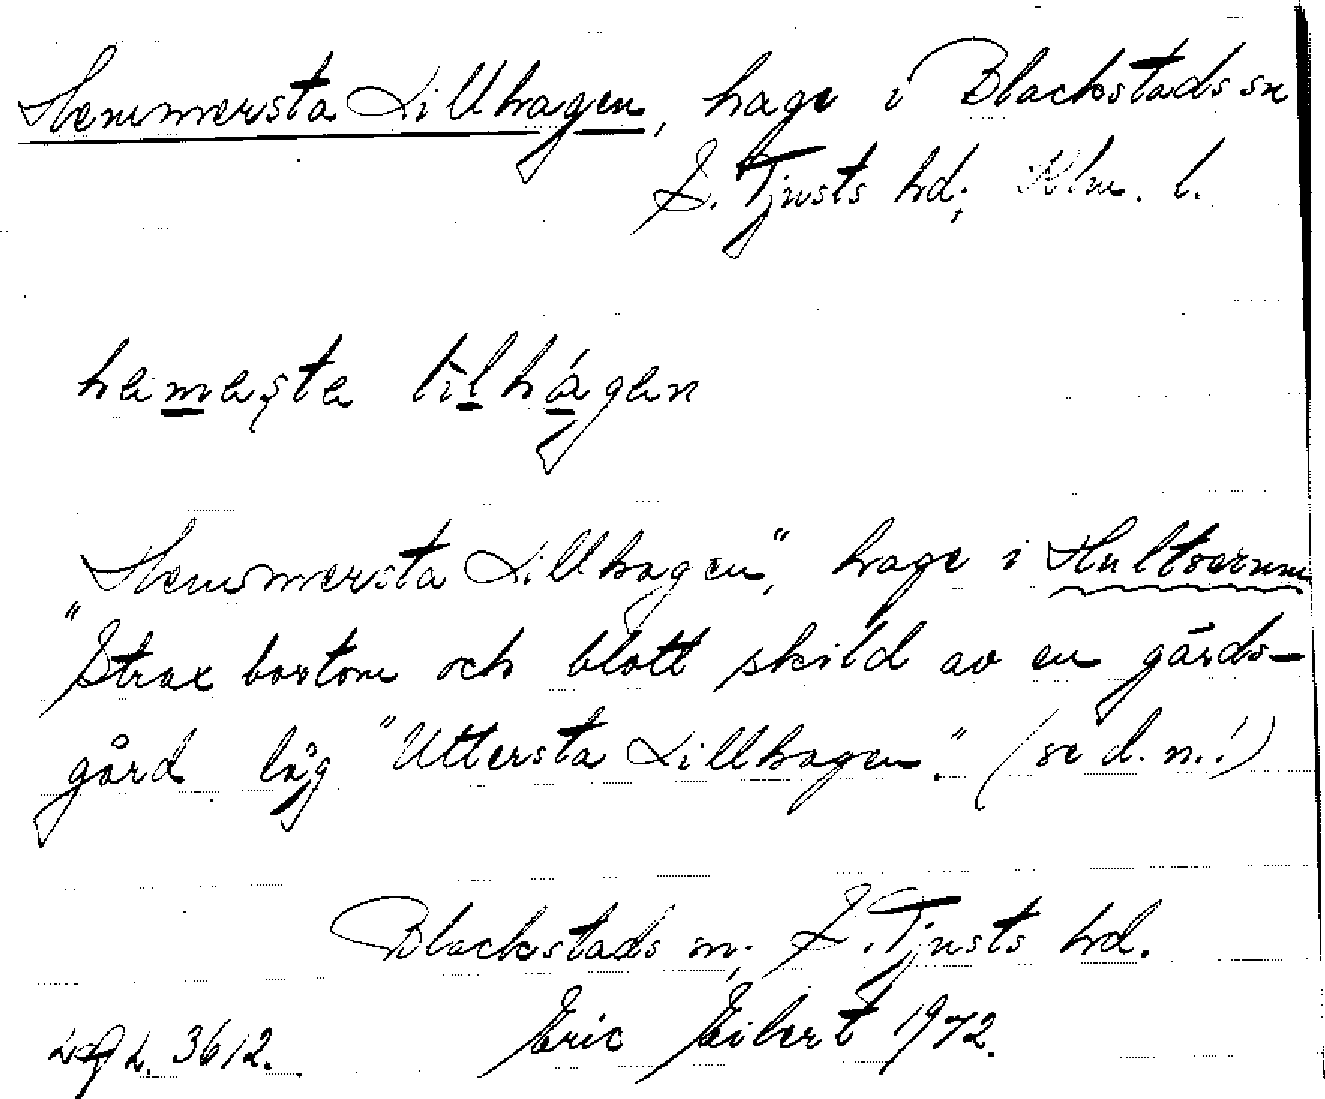 Hemmersta Lillhagen, hage i Blackstads sn
S. Tjusts hd; Klm. l.
hemeşte lilhágen
"Hemmersta Lillhagen", hage i Hultserum
Strax bortom och blott skild av en gärds-
gård låg "Uttersta Lillhagen". (se d. n.!)
Blackstads sn; S. Tjusts hd.
Eric Eilert 1972.
3612.